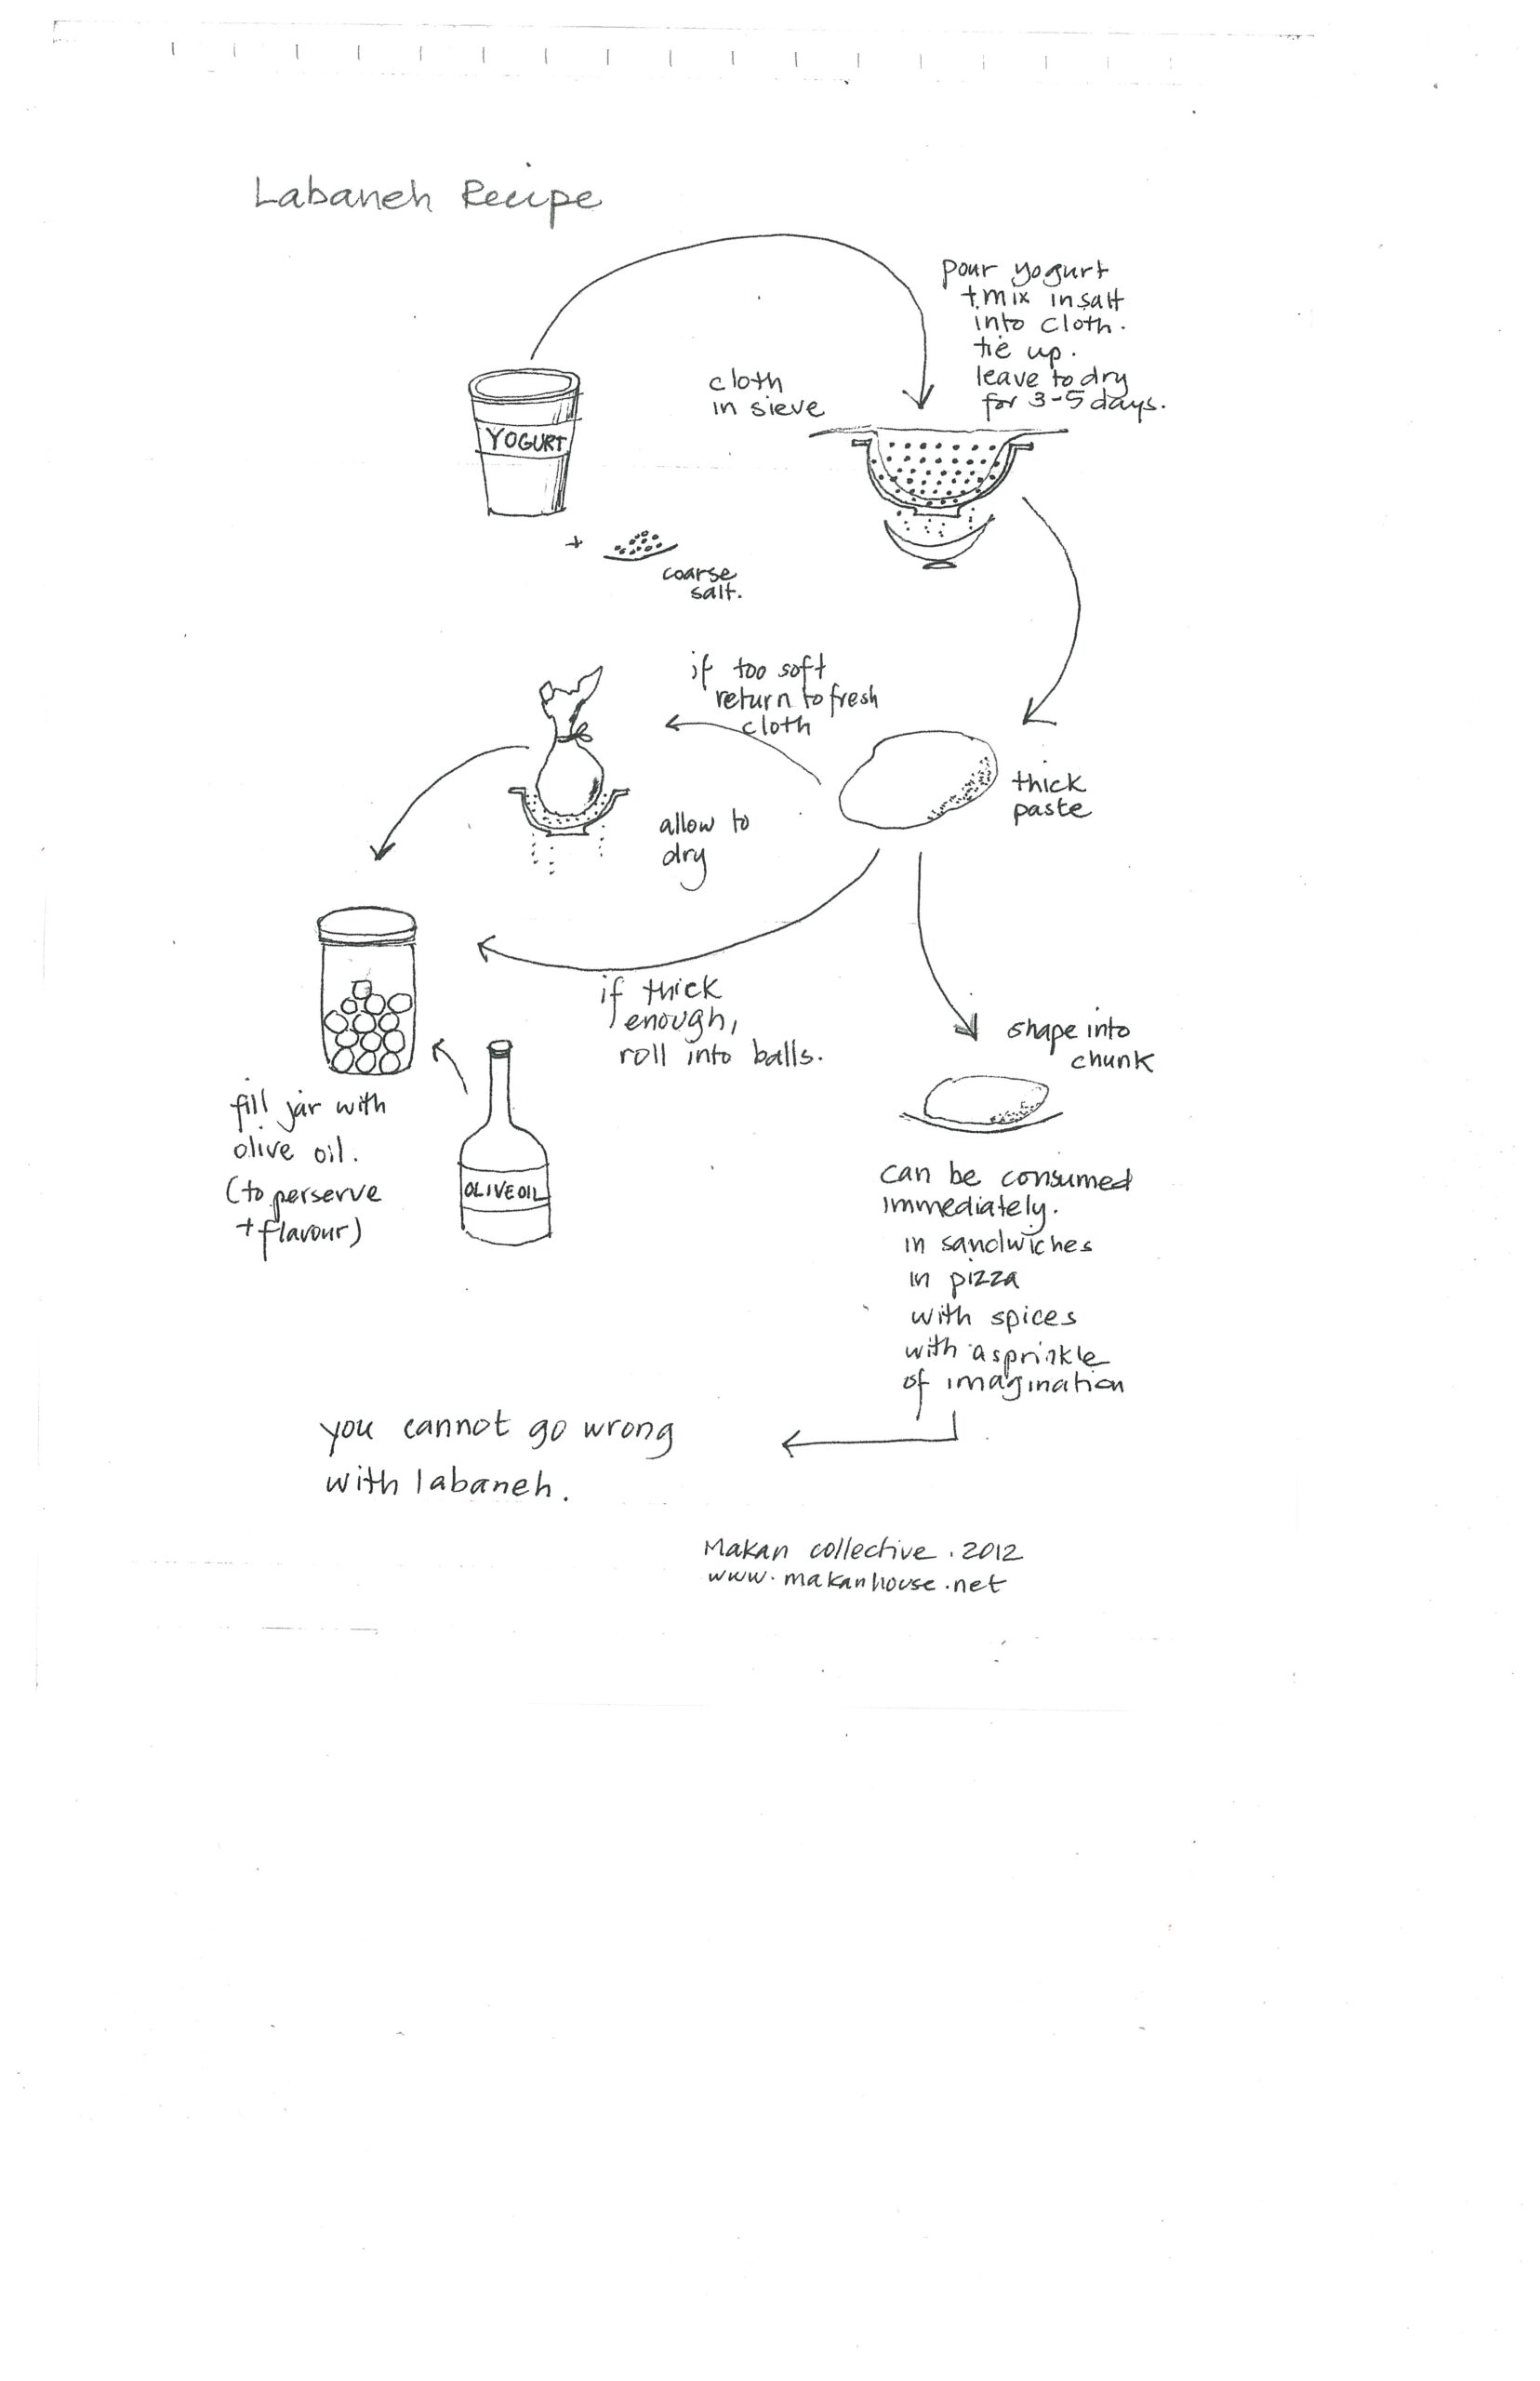 Labaneh Recipe
pour yogurt
+ mix in salt
into cloth.
tie up.
leave to dry
for 3-5 days.
cloth
in sieve
YOGURT
+
coarse
salt.
if too soft
return to fresh
cloth
thick
paste
allow to
dry
if thick
enough,
roll into balls.
shape into
chunk
fill jar with
olive oil.
(to perserve
+ flavour)
OLIVE OIL
can be consumed
immediately.
in sandwiches
in pizza
with spices
with a sprinkle
of imagination
you cannot go wrong
with labaneh.
Makan collective . 2012
www.makanhouse.net